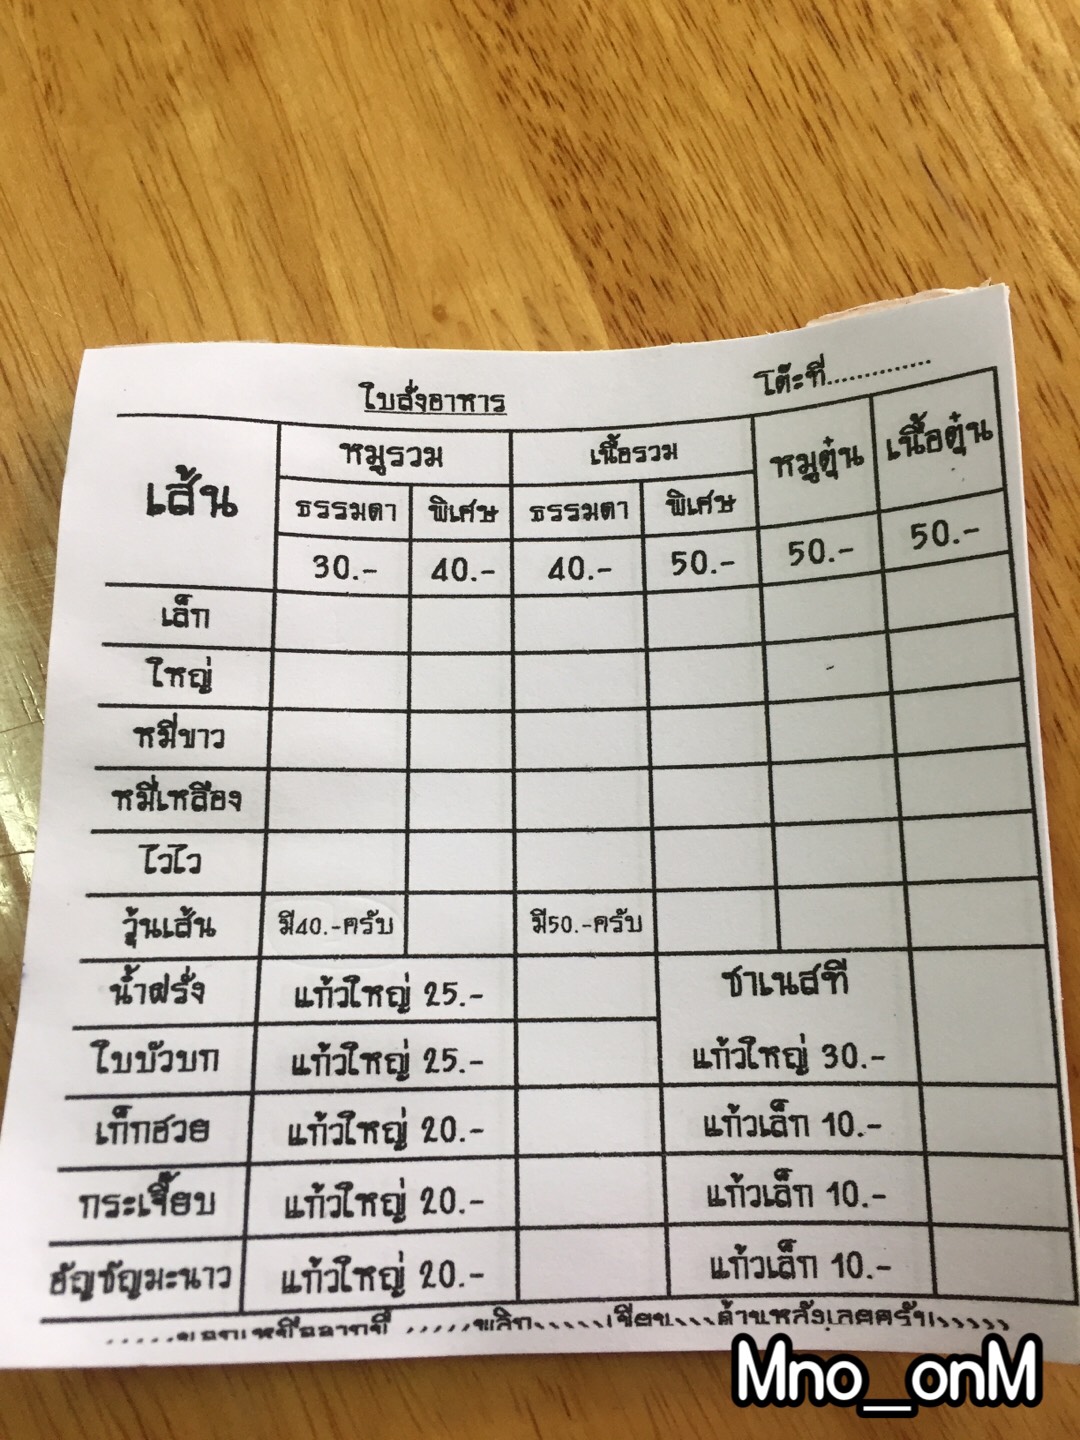 ใบสั่งอาหาร โต๊ะที่..............
เส้น หมูรวม เนื้อรวม หมูตุ๋น เนื้อตุ๋น
ธรรมดา พิเศษ ธรรมดา พิเศษ
30.- 40.- 40.- 50.- 50.- 50.-
เล็ก
ใหญ่
หมี่ขาว
หมี่เหลือง
ไวไว
วุ้นเส้น มี40.-ครับ มี50.-ครับ
น้ำฝรั่ง แก้วใหญ่ 25.- ชาเนสที
ใบบัวบก แก้วใหญ่ 25.- แก้วใหญ่ 30.-
เก็กฮวย แก้วใหญ่ 20.- แก้วเล็ก 10.-
กระเจี๊ยบ แก้วใหญ่ 20.- แก้วเล็ก 10.-
อัญชัญมะนาว แก้วใหญ่ 20.- แก้วเล็ก 10.-
.....นอกเหนือจากนี้ .....พลิก.....เขียน...ด้านหลังเลยครับ.....
Mno_onM